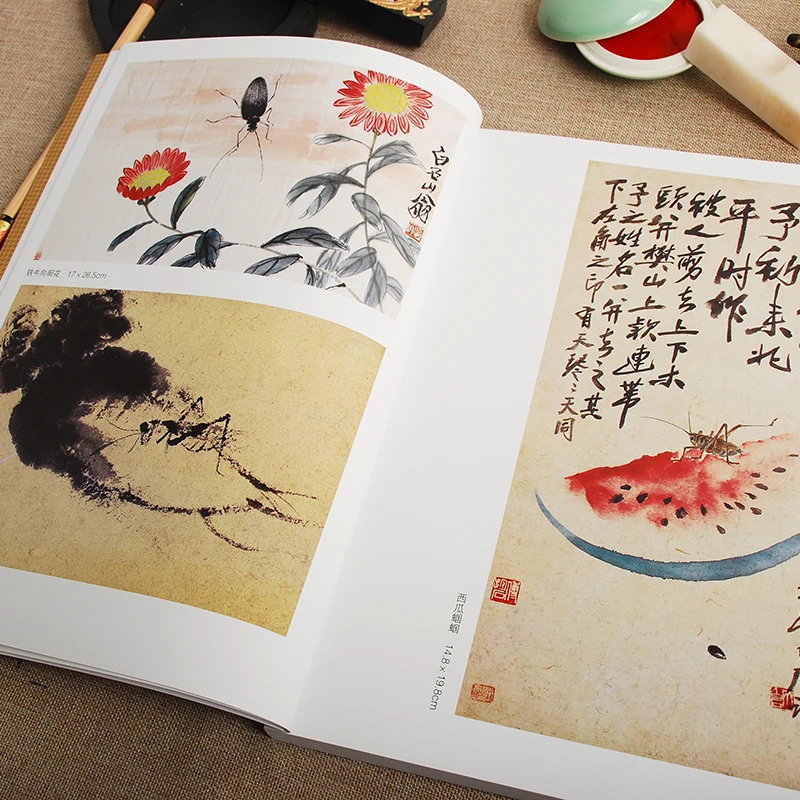 白石山翁
铁牛向阳花 17×26.5cm
予初来北
平时作
被人剪去上下木
頭并樊山上款連带
予之姓名一并去之其
下左角之印有天琴二天同
西瓜蝈蝈 14.8×19.8cm